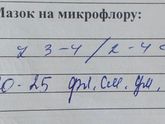 Мазок на микрофлору:
з 3-4/2-4 с
0-25 фл. см. фл.